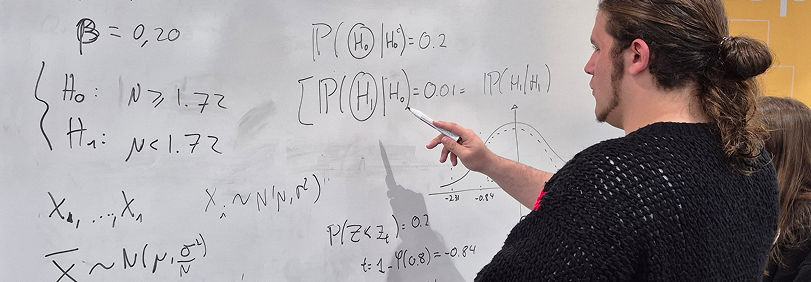 β = 0,20
H₀: μ ≥ 1.72
H₁: μ < 1.72
X₁, ..., X₁
Xᵢ ~ N(μ, σ²)
X̄ ~ N(μ, σ²/N)
ℙ(H₀|H₀ᶜ) = 0.2
[ℙ(H₁|H₀) = 0.01 = ℙ(H₁|H₁)
-2.31 -0.84 0
ℙ(Z < Zₜ) = 0.2
t = 1 - φ(0.8) = -0.84